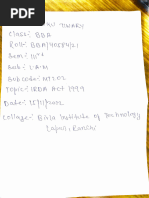 Class:- BBA
Roll:- BBA/40684/21
Sem:- IVth
Sub:- L.A.M
Sub code:- MT202
Topic:- IRDA Act 1999
Date:-
College:- Birla Institute of Technology
Lalpur, Ranchi